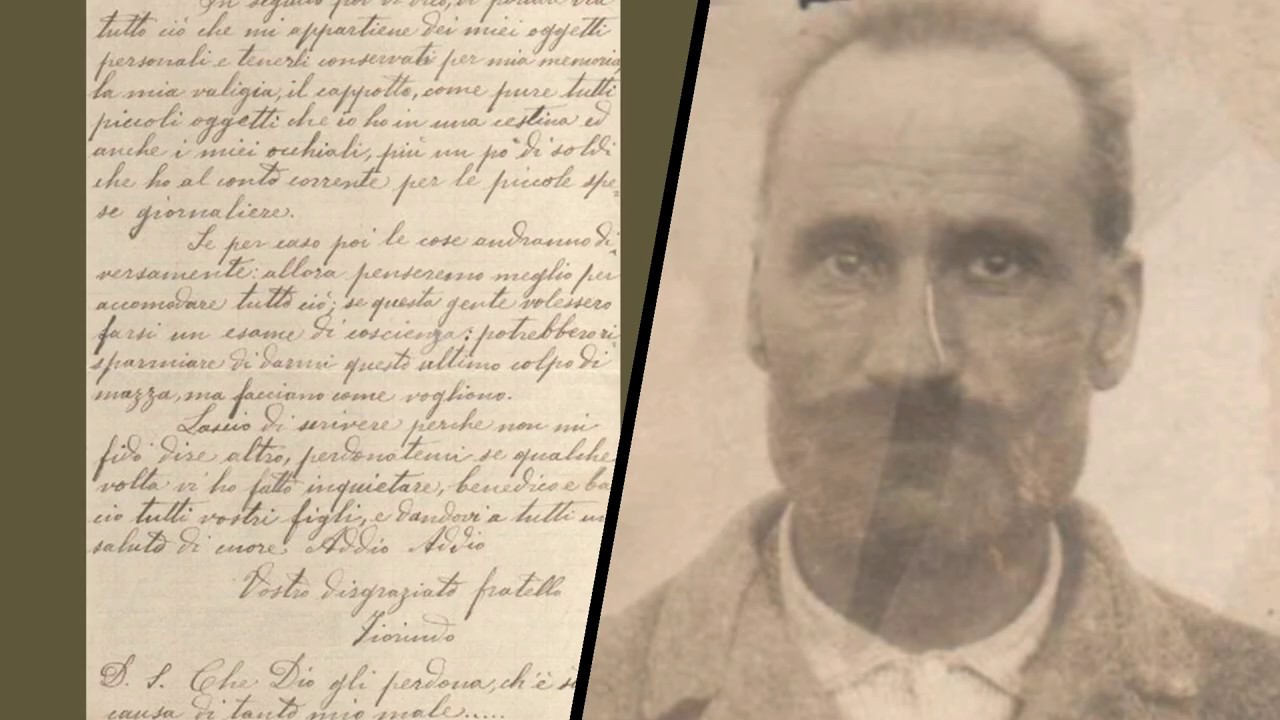 In seguito poi vi dico, di portare via
tutto ciò che mi appartiene dei miei oggetti
personali e tenerli conservati per mia memoria
la mia valigia, il cappotto, come pure tutti
piccoli oggetti che io ho in una cestina ed
anche i miei occhiali, più un pò di soldi
che ho al conto corrente per le piccole spe=
se giornaliere.
Se per caso poi le cose andranno di
versamente: allora penseremo meglio per
accomodare tutto ciò; se questa gente volessero
farsi un esame di coscienza: potrebbero ri
sparmiare di darmi questo ultimo colpo di
mazza, ma facciano come vogliono.
Lascio di scrivere perche non mi
fido dire altro, perdonatemi se qualche
volta vi ho fatto inquietare, benedico e ba
cio tutti vostri figli, e dandovi a tutti un
saluto di cuore. Addio Addio
Vostro disgraziato fratello
Fiorindo
P. S. Che Dio gli perdona, ch'è
causa di tanto mio male.....